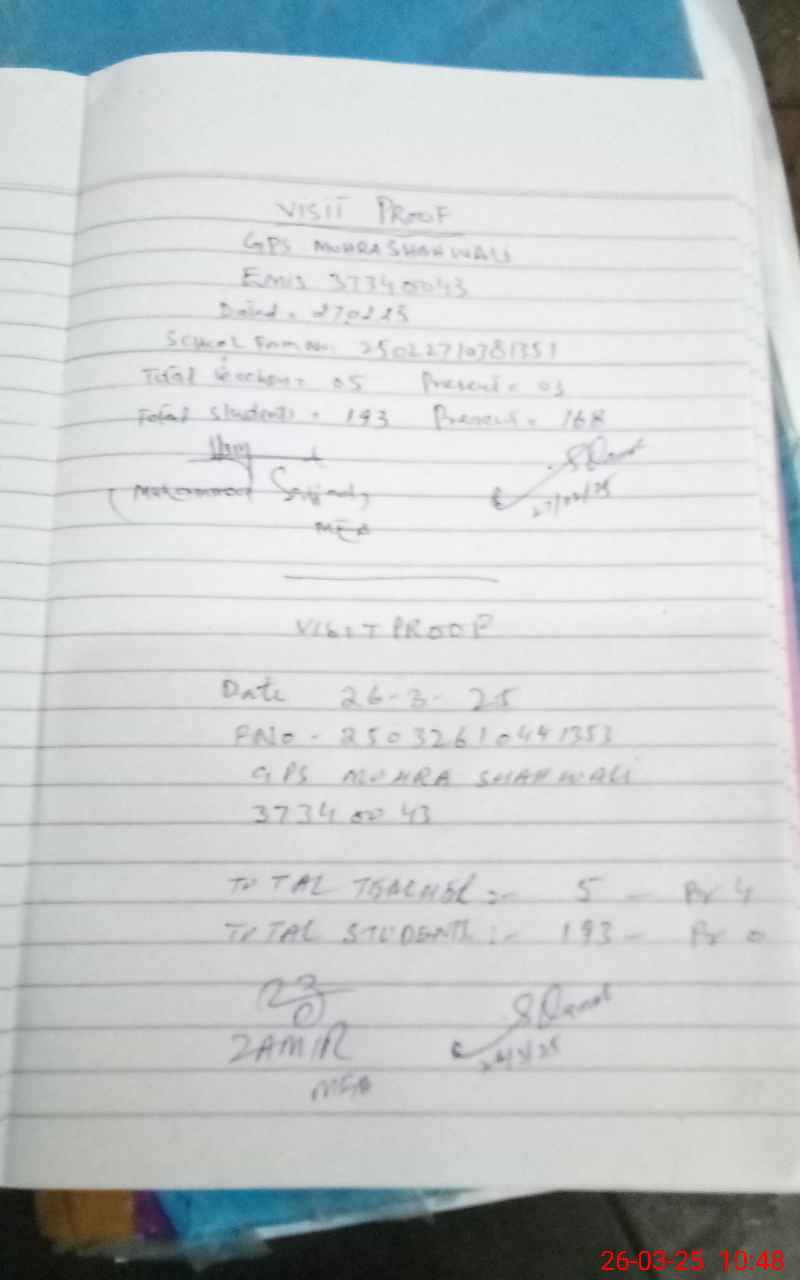 VISIT PROOF
GPS MOHRA SHAH WALI
Emis 37340043
Dated. 270225
School
Total teachers= 05 Present= 05
Total students = 193 Present= 168
Muhammad Sajjad,
27/02/25
MEA
VISIT PROOF
Date 26-3-25
FNo - 25032610441353
GPS MOHRA SHAH WALI
37340043
TOTAL TEACHER:- 5 - Pr 4
TOTAL STUDENTS:- 193 - Pr 0
ZAMIR
MEA
26-03-25 10:48